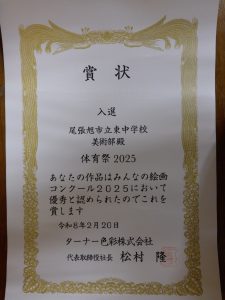 賞状
入選
尾張旭市立東中学校
美術部殿
体育祭 2025
あなたの作品はみんなの絵画
コンクール2025において
優秀と認められたのでこれを
賞します
令和8年2月20日
ターナー色彩株式会社
代表取締役社長 松村 隆